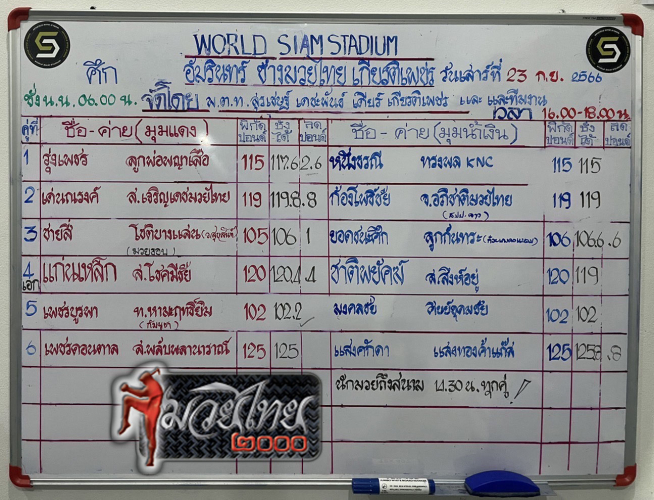 WORLD SIAM STADIUM
ศึก อัมรินทร์ ช้างมวยไทย เกียรติเพชร วันเสาร์ที่ 23 ก.ย. 2566
ชั่ง น.น. 06.00 น. จัดโดย พ.ต.ท. สุรเชษฐ์ เดชะพันธ์ เกียร์ เกียรติเพชร และ และทีมงาน
เวลา 16.00-18.00 น.
คู่ที่ ชื่อ - ค่าย (มุมแดง) พิกัด ปอนด์ ชั่งได้ ลด ปอนด์ ชื่อ - ค่าย (มุมน้ำเงิน) พิกัด ปอนด์ ชั่งได้ ลด ปอนด์
1 รุ่งเพชร ลูกพ่อพญาเสือ 115 117.6 2.6 หนึ่งธรณี ทรงพล KNC 115 115
2 เด่นณรงค์ ส.เจริญเดชมวยไทย 119 119.8 .8 ก้องโพธิ์ชัย จ.อภิชาติมวยไทย 119 119
3 ชายสี่ โชติบางแสน 105 106 1 ยอดชนะศึก ลูกกันทระ 106 106.6 .6
(มวยรอบ)
4 แก่นหลัก ส.โชคมีชัย 120 120.4 .4 ชาติพยัคฆ์ ส.สิงห์อยู่ 120 119
เอก
5 เพชรบูรพา ท.หามะฤทธิ์ยิม 102 102.2 มงคลชัย วิชย์อุดมชัย 102 102
(กัมพูชา)
6 เพชรดอนตาล ส.พลับพลานาราณี 125 125 แสงศักดา แสงทองค้าแก๊ส 125 125.8 .8
นักมวยถึงสนาม 14.30 น. ทุกคู่ !
มวยไทย
๒๐๐๐